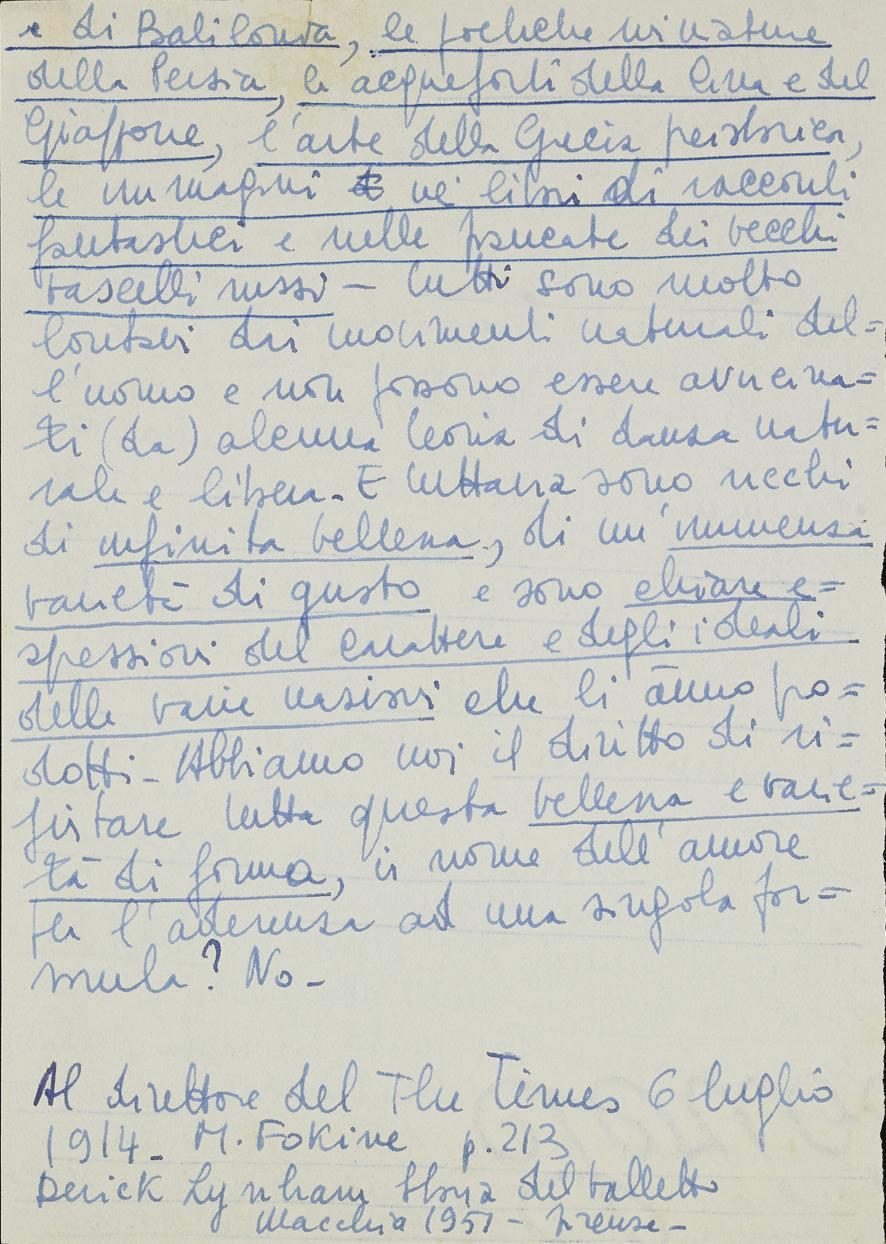 e di Babilonia, le poetiche miniature
della Persia, le acqueforti della Cina e del
Giappone, l'arte della Grecia preistorica,
le immagini ne' libri di racconti
fantastici e nelle pancate dei vecchi
vascelli russi - tutti sono molto
lontani dai movimenti naturali del=
l'uomo e non possono essere avvicina=
ti (da) alcuna teoria di danza natu=
rale e libera. E tuttavia sono ricchi
di infinita bellezza, di un'immensa
varietà di gusto e sono chiare e=
spressioni del carattere e degli ideali
delle varie nazioni che li ànno pro=
dotti - Abbiamo noi il diritto di ri=
gettare tutta questa bellezza e varie=
tà di forma, in nome dell'amore
per l'aderenza ad una singola for=
mula? No -
Al direttore del The Times 6 luglio
1914 - M. Fokine p. 213
Derick Lynham Storia del balletto
Macchia 1951 - Firenze -